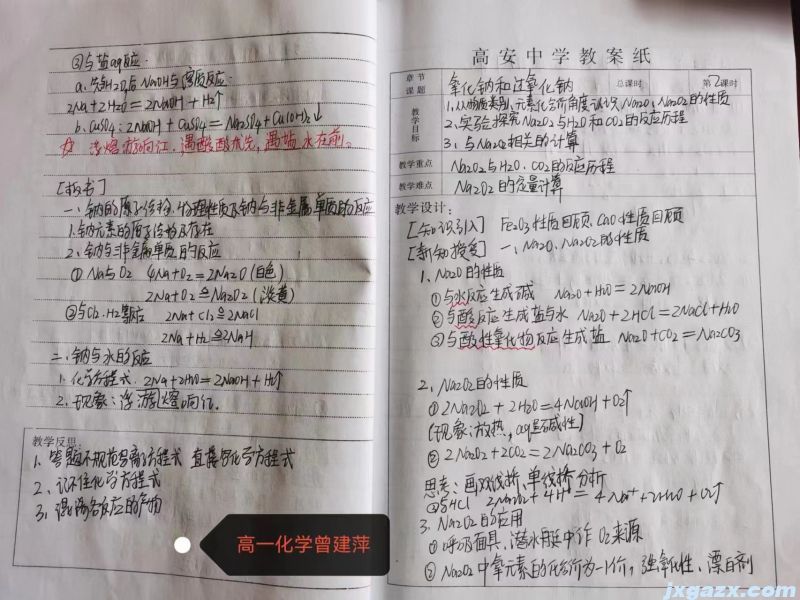 ②与盐aq反应
a. 先与H2O后NaOH与溶质反应
2Na+2H2O=2NaOH+H2↑
b. CuSO4: 2NaOH+CuSO4=Na2SO4+Cu(OH)2↓
☆ 浮熔游响红,遇酸酸优先,遇盐水在前。
[板书]
一、钠的原子结构、物理性质及钠与非金属单质的反应
1.钠元素的原子结构及存在
2、钠与非金属单质的反应
①Na与O2 4Na+O2=2Na2O(白色)
2Na+O2≙Na2O2(淡黄)
②与Cl2、H2等反应 2Na+Cl2≙2NaCl
2Na+H2≙2NaH
二、钠与水的反应
1. 化学方程式 2Na+2H2O=2NaOH+H2↑
2. 现象:浮游熔响红。
教学反思:
1、答题不规范写离子方程式 直接写化学方程式
2、记不住化学方程式
3、混淆各反应的产物
高一化学曾建萍
高安中学教案纸
章节课题
氧化钠和过氧化钠
总课时
第2课时
教学目标
1.从物质类别、元素化合价角度认识Na2O、Na2O2的性质
2、实验探究Na2O2与H2O和CO2的反应历程
3、与Na2O2相关的计算
教学重点
Na2O2与H2O、CO2的反应历程
教学难点
Na2O2的定量计算
教学设计:
[知识引入] Fe2O3性质回顾、CaO性质回顾
[新知授受] 一、Na2O、Na2O2的性质
1、Na2O的性质
①与水反应生成碱 Na2O+H2O=2NaOH
②与酸反应生成盐与水 Na2O+2HCl=2NaCl+H2O
③与酸性氧化物反应生成盐 Na2O+CO2=Na2CO3
2、Na2O2的性质
①2Na2O2+2H2O=4NaOH+O2↑
(现象:放热,aq呈碱性)
②2Na2O2+2CO2=2Na2CO3+O2
思考:画双线桥、单线桥分析
③与HCl 2Na2O2+4H⁺=4Na⁺+2H2O+O2↑
3. Na2O2的应用
①呼吸面具,潜水艇中作O2来源
②Na2O2中氧元素的化合价为-1价,强氧化性、漂白剂
jxgazx.com